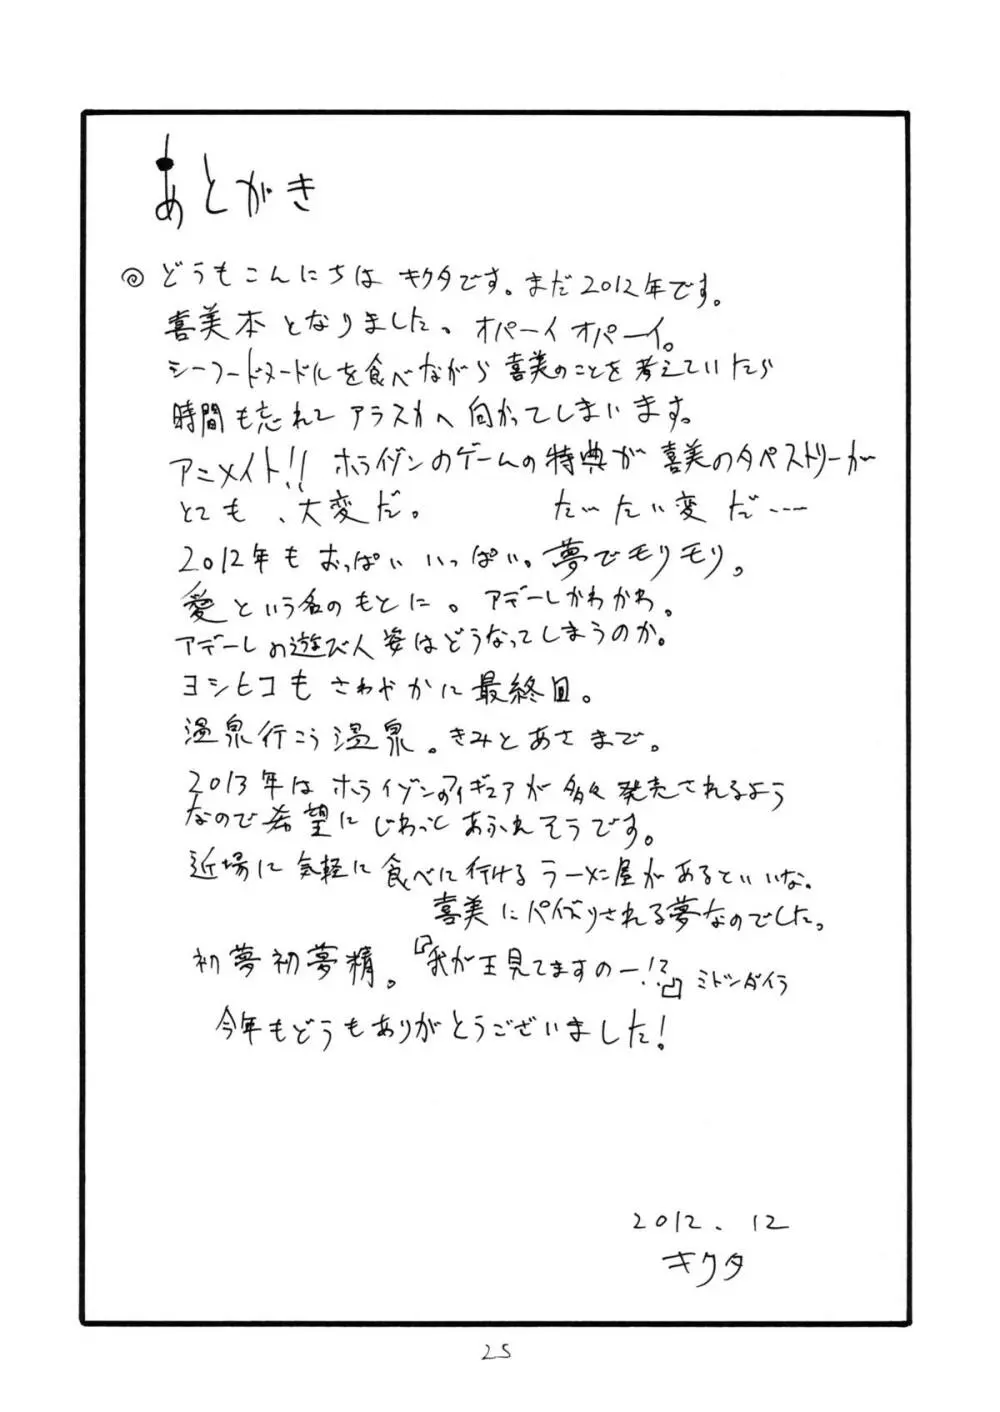 あとがき
◎どうもこんにちは キクタです。まだ2012年です。
喜美本となりました。オパーイオパーイ。
シーフードヌードルを食べながら喜美のことを考えていたら
時間も忘れて アラスカへ 向かってしまいます。
アニメイト!! ホライゾンのゲームの特典が 喜美のタペストリーが
とても、大変だ。 たいたい変だ……
2012年も おっぱい いっぱい。夢でモリモリ。
愛という名のもとに。アデーレかわかわ。
アデーレの遊び人姿はどうなってしまうのか。
ヨシヒコもさわやかに最終回。
温泉行こう温泉。きみとあさまで。
2013年は ホライゾンのフィギュアが 多々 発売されるよう
なので希望に じわっと あふれそうです。
近場に気軽に食べに行ける ラーメン屋があるといいな。
喜美にパイズリされる夢なのでした。
初夢初夢精。『我が王見てますのー!?』ミトツダイラ
今年もどうもありがとうございました!
2012.12
キクタ
25